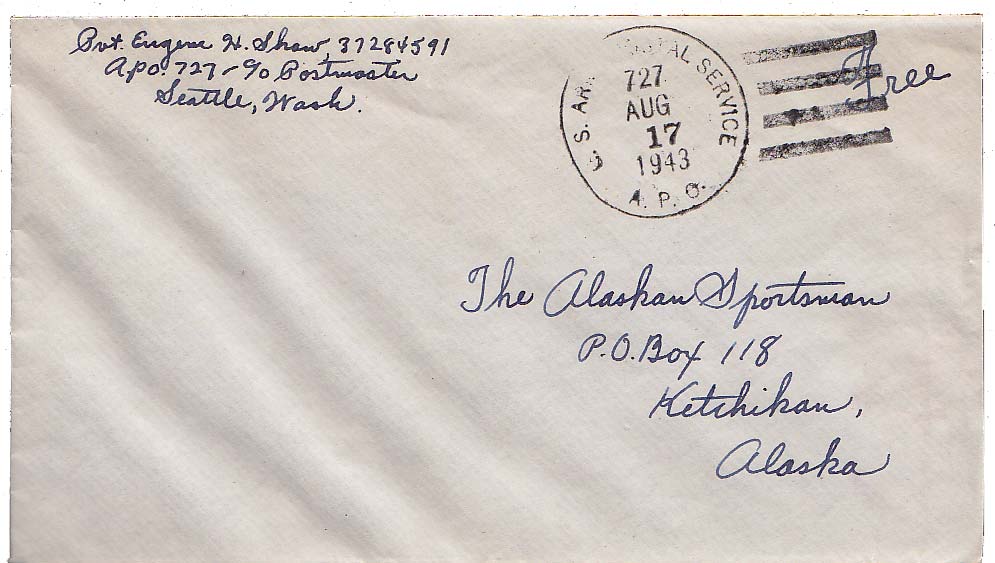 Pvt. Eugene H. Shaw, 37284591
A.P.O. 727 - c/o Postmaster
Seattle, Wash.
S. AR. POSTAL SERVICE
727
AUG
17
1943
A. P. O.
Free
The Alaskan Sportsman
P.O. Box 118
Ketchikan,
Alaska